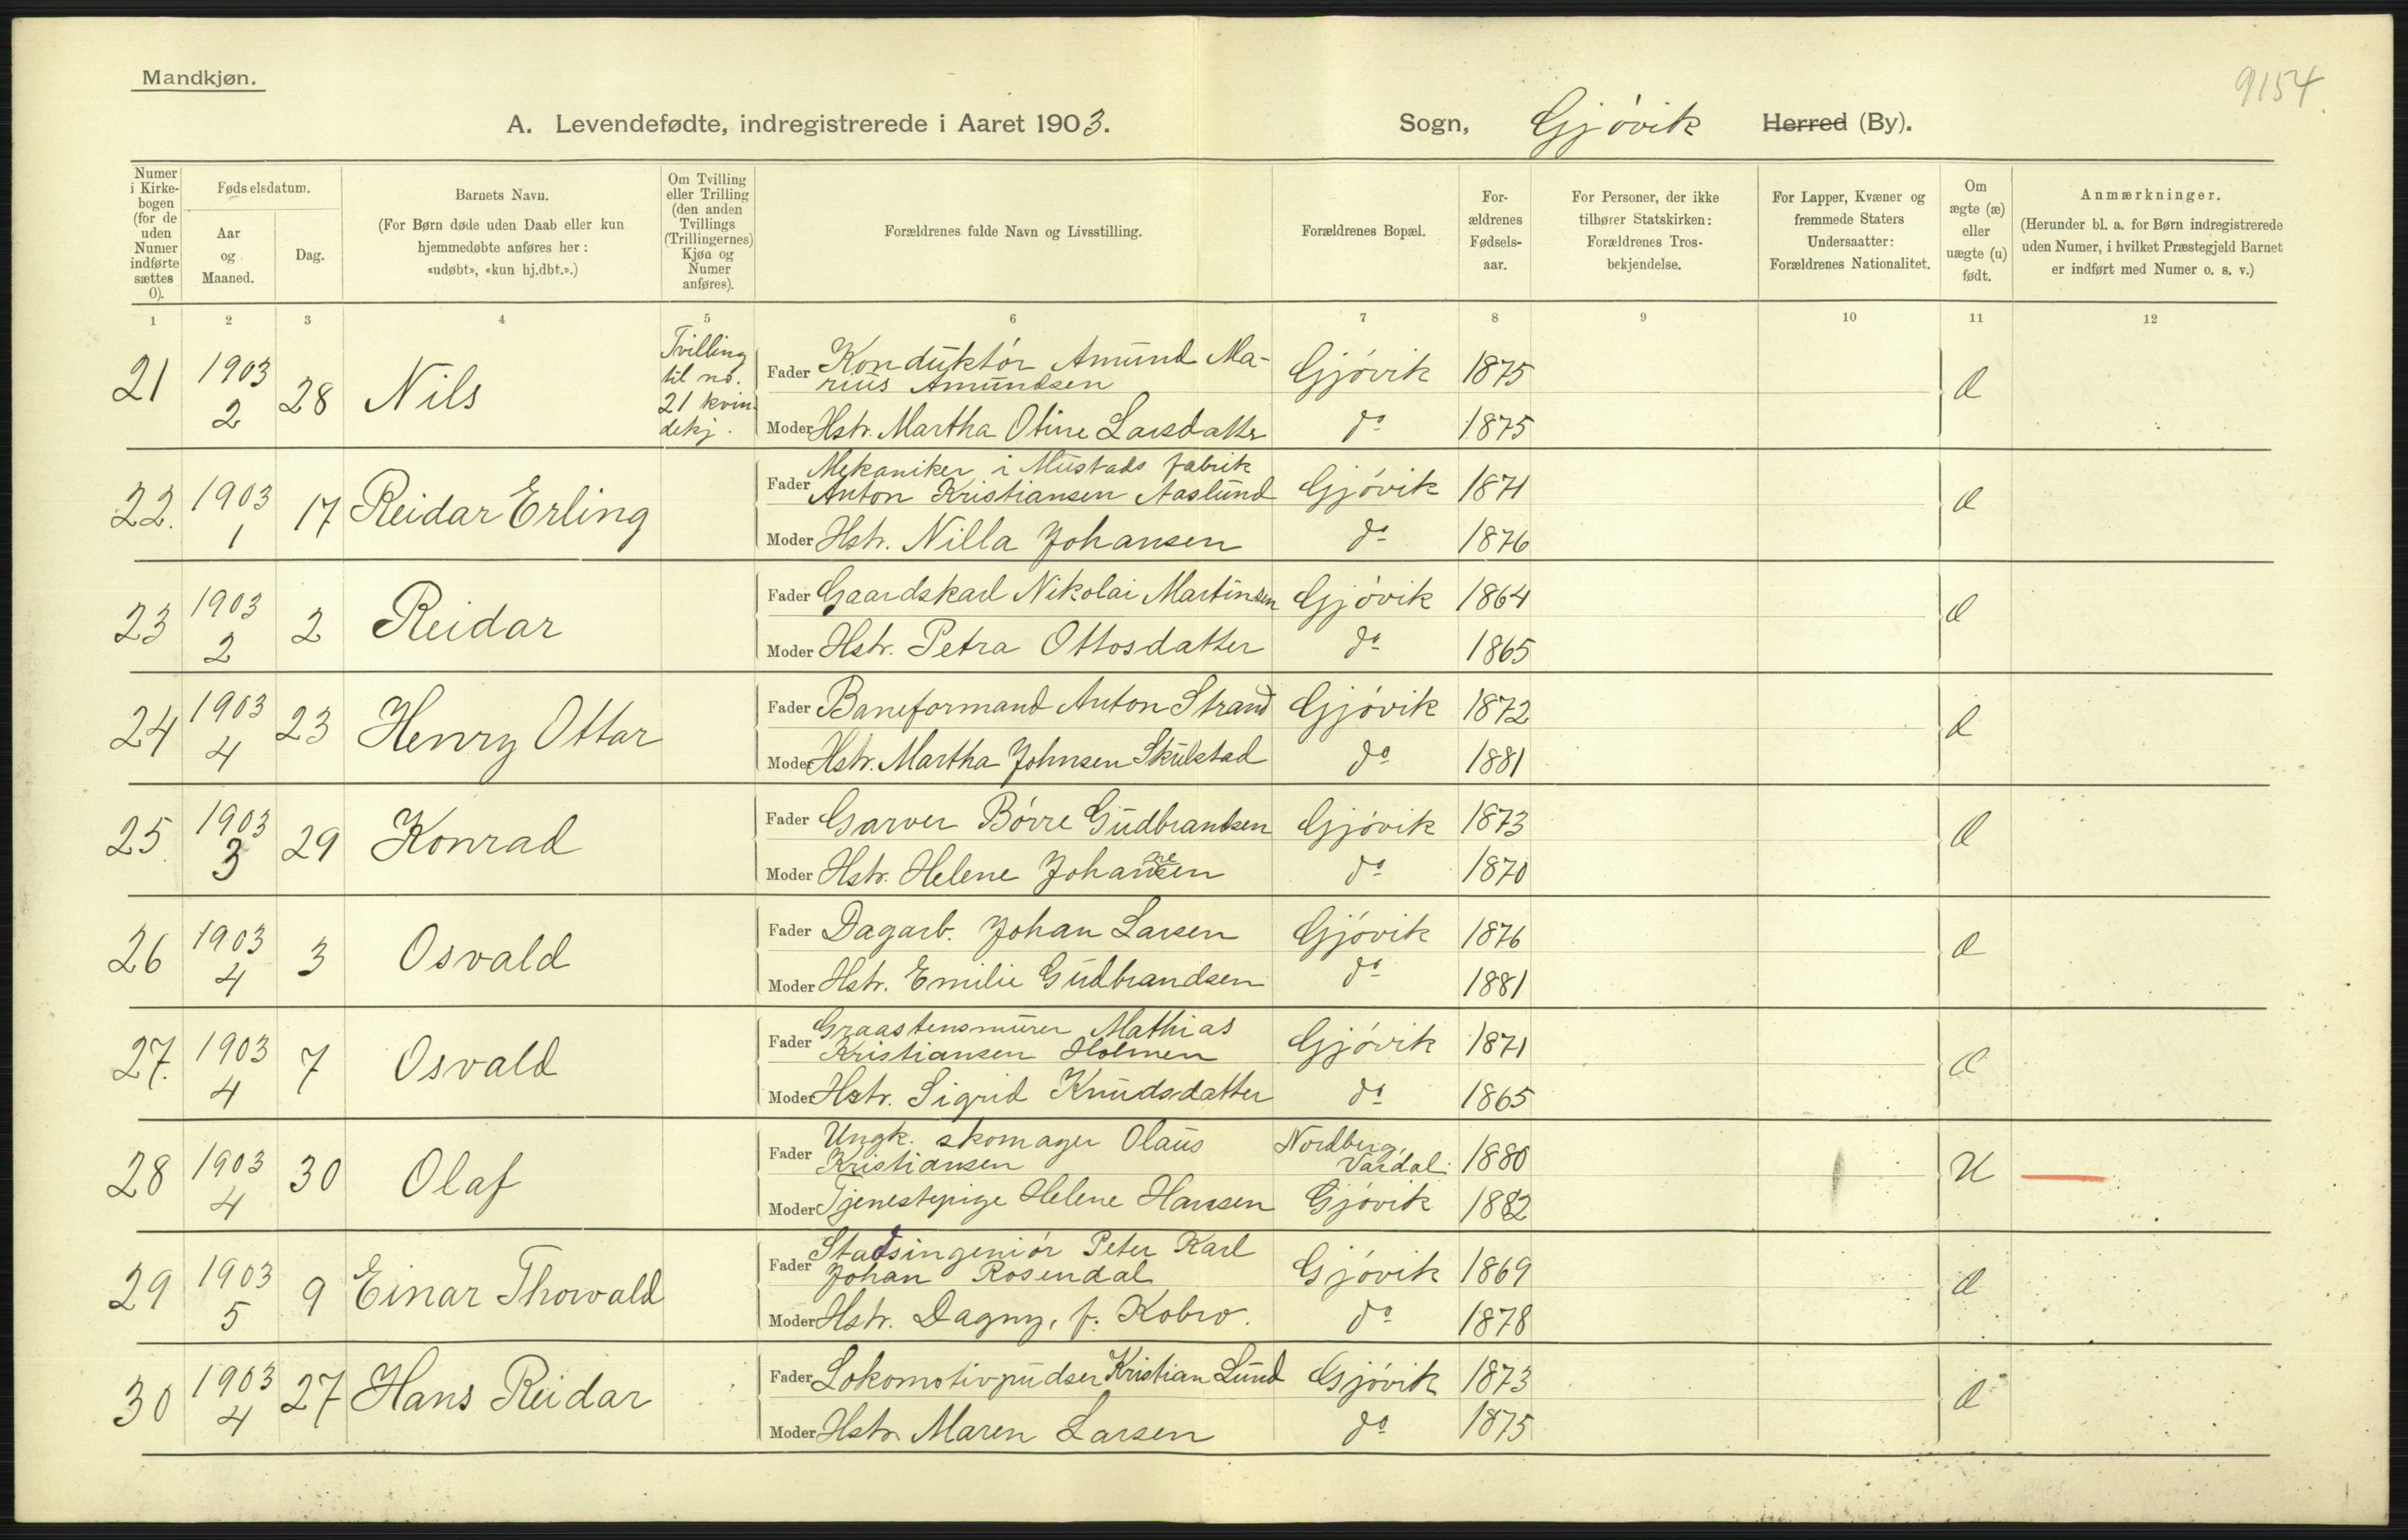 Mandkjøn.
9154
A. Levendefødte, indregistrerede i Aaret 1903. Sogn, Gjøvik Herred (By).
Numer i Kirkebogen (for de uden Numer indførte sættes 0).
Fødselsdatum.
Aar og Maaned.
Dag.
Barnets Navn.
(For Børn døde uden Daab eller kun hjemmedøbte anføres her: «udøbt», «kun hj.dbt.».)
Om Tvilling eller Trilling (den anden Tvillings (Trillingernes) Kjøn og Numer anføres).
Forældrenes fulde Navn og Livsstilling.
Forældrenes Bopæl.
Forældrenes Fødselsaar.
For Personer, der ikke tilhører Statskirken: Forældrenes Trosbekjendelse.
For Lapper, Kvæner og fremmede Staters Undersaatter: Forældrenes Nationalitet.
Om ægte (æ) eller uægte (u) født.
Anmærkninger.
(Herunder bl. a. for Børn indregistrerede uden Numer, i hvilket Præstegjeld Barnet er indført med Numer o. s. v.)
1 2 3 4 5 6 7 8 9 10 11 12
21 1903 2 28 Nils Tvilling til no. 21 kvindekj. Fader Konduktør Amund Marius Amundsen Gjøvik 1875 æ
Moder Hstr. Martha Otine Larsdatter do 1875
22. 1903 1 17 Reidar Erling Fader Mekaniker i Mustads fabrik Anton Kristiansen Aaslund Gjøvik 1871 æ
Moder Hstr. Nilla Johansen do 1876
23 1903 2 2 Reidar Fader Gaardskarl Nikolai Martinsen Gjøvik 1864 æ
Moder Hstr. Petra Ottosdatter do 1865
24 1903 4 23 Henry Ottar Fader Baneformand Anton Strand Gjøvik 1872 æ
Moder Hstr. Martha Johnsen Skulstad do 1881
25 1903 3 29 Konrad Fader Garver Børre Gudbrandsen Gjøvik 1873 æ
Moder Hstr. Helene Johannesen do 1870
26 1903 4 3 Osvald Fader Dagarb. Johan Larsen Gjøvik 1876 æ
Moder Hstr. Emilie Gudbrandsen do 1881
27. 1903 4 7 Osvald Fader Graastensmurer Mathias Kristiansen Holmen Gjøvik 1871 æ
Moder Hstr. Sigrid Knudsdatter do 1865
28 1903 4 30 Olaf Fader Ungk. skomager Olaus Kristiansen Nordberg, Vardal. 1880 u
Moder Tjenestepige Helene Hansen Gjøvik 1882
29 1903 5 9 Einar Thorvald Fader Stadsingeniør Peter Karl Johan Rosendal Gjøvik 1869 æ
Moder Hstr. Dagny, f. Kobro. do 1878
30 1903 4 27 Hans Reidar Fader Lokomotivpudser Kristian Lund Gjøvik 1873 æ
Moder Hstr. Maren Larsen do 1875